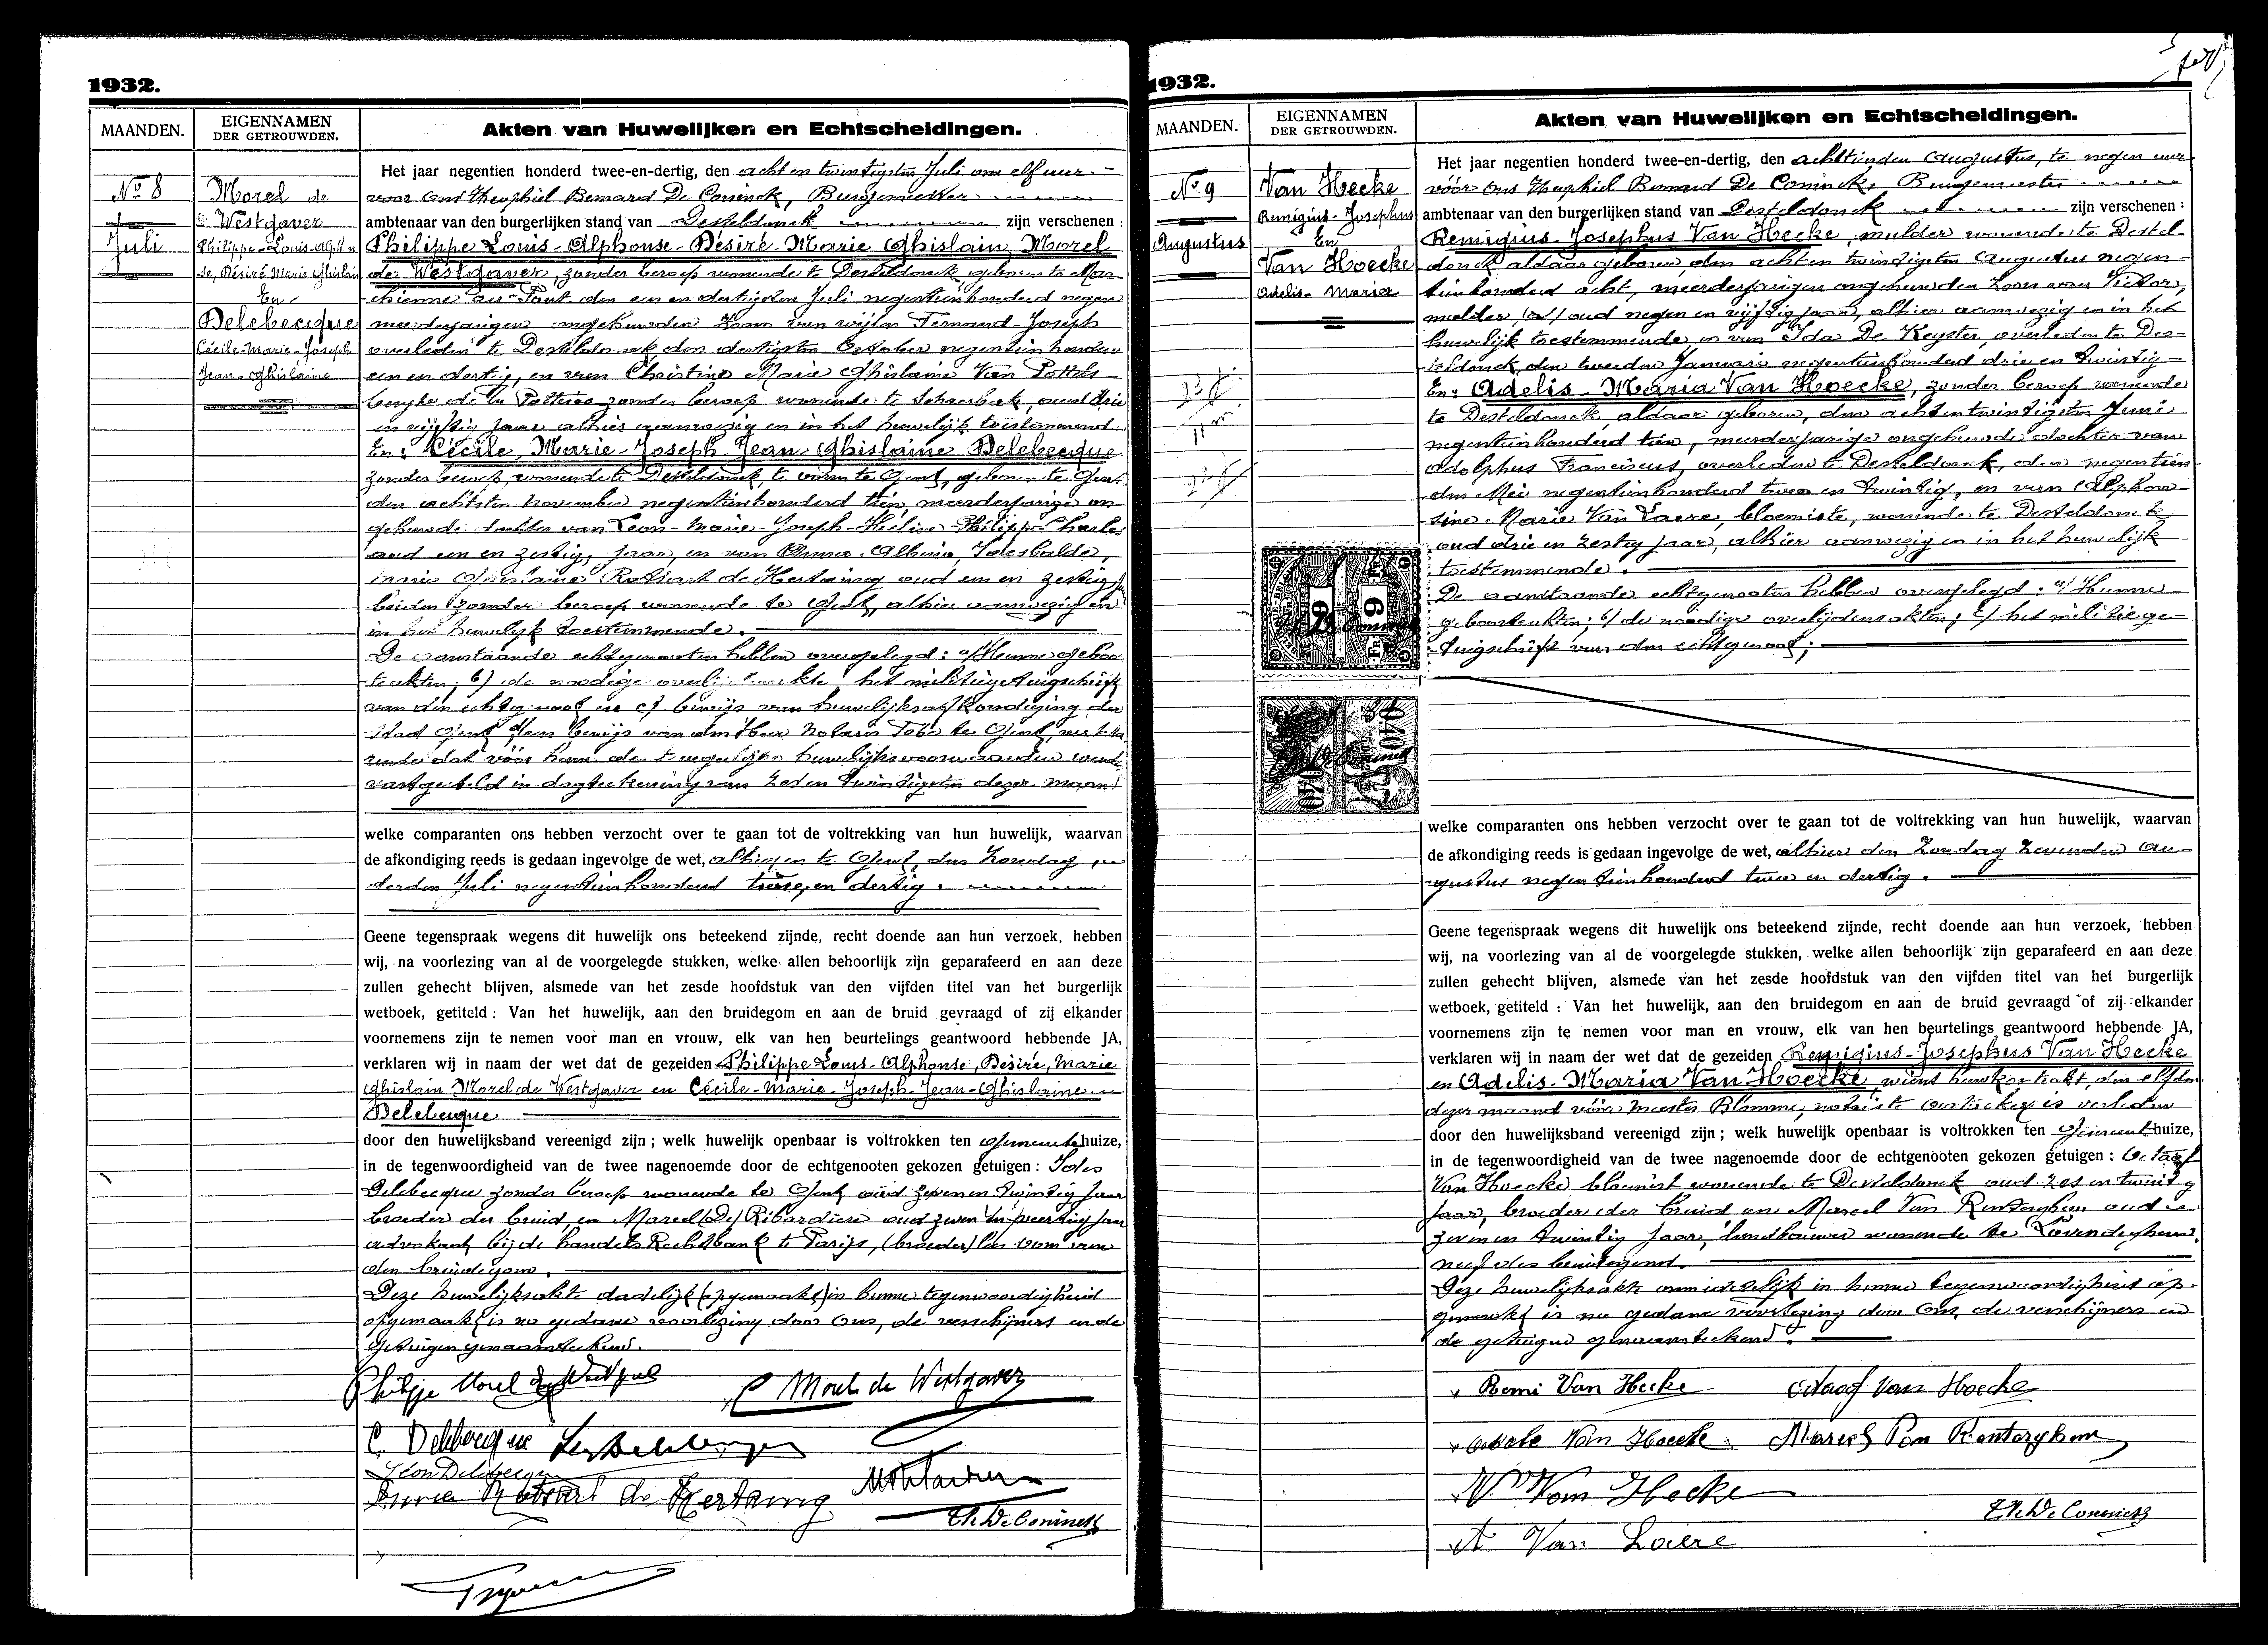 1932.
MAANDEN.
EIGENNAMEN
DER GETROUWDEN.
Akten van Huwelijken en Echtscheidingen.
No 8
Juli
Morel de
Westgaver
Philippe-Louis-Alphon
se, Désiré Marie Ghislain
En
Delebecque
Cécile-Marie-Joseph
Jean-Ghislaine
Het jaar negentien honderd twee-en-dertig, den acht en twintigsten Juli om elf uur.
voor ons Theophiel Bernard De Coninck, Burgemeester
ambtenaar van den burgerlijken stand van Desteldonck zijn verschenen :
Philippe Louis-Alphonse-Désiré-Marie Ghislain Morel
de Westgaver, zonder beroep wonende te Desteldonck, geboren te Mar-
chienne au-Pont den een en dertigsten Juli negentienhonderd negen
meerderjarigen ongehuwden zoon van wijlen Fernand-Joseph
overleden te Desteldonck den dertigsten October negentienhonderd
een en dertig, en van Christine Marie Ghislaine Van Pottels-
berghe de la Potterie zonder beroep wonende te Schaerbeek, oud drie
en vijftig jaar alhier aanwezig en in het huwelijk toestemmend.
En : Cécile, Marie-Joseph Jean-Ghislaine Delebecque
zonder beroep, wonende te Desteldonck, te voren te Gent, geboren te Gent
den achtsten november negentienhonderd tien, meerderjarige on-
gehuwde dochter van Leon-Marie-Joseph- Philipp-Charles
oud een en zestig, jaar, en van Anna Albina, Idesbalde,
Marie Ghislaine Robiart de Hertaing oud een en zestig
beiden zonder beroep wonende te Gent, alhier aanwezig en
in het huwelijk toestemmende.
De aanstaande echtgenooten hebben overgelegd : a/ Hunne geboo-
teakten; b) de noodige het militiegetuigschrift
van den echtgenoot en c) bewijs van huwelijksafkondiging der
stad Gent d/ een bewijs van den Heer Notaris te Gent, verkla-
rende dat vóór hem de huwelijksvoorwaarden werden
vastgesteld in dagteekening van zes en twintigsten dezer maand
welke comparanten ons hebben verzocht over te gaan tot de voltrekking van hun huwelijk, waarvan
de afkondiging reeds is gedaan ingevolge de wet, alhier en te Gent, den Zondag
derden Juli negentienhonderd twee en dertig.
Geene tegenspraak wegens dit huwelijk ons beteekend zijnde, recht doende aan hun verzoek, hebben
wij, na voorlezing van al de voorgelegde stukken, welke allen behoorlijk zijn geparafeerd en aan deze
zullen gehecht blijven, alsmede van het zesde hoofdstuk van den vijfden titel van het burgerlijk
wetboek, getiteld : Van het huwelijk, aan den bruidegom en aan de bruid gevraagd of zij elkander
voornemens zijn te nemen voor man en vrouw, elk van hen beurtelings geantwoord hebbende JA,
verklaren wij in naam der wet dat de gezeiden Philippe Louis-Alphonse, Désiré, Marie
Ghislain Morel de Westgaver en Cécile-Marie-Joseph-Jean-Ghislaine
Delebecque
door den huwelijksband vereenigd zijn ; welk huwelijk openbaar is voltrokken ten Gemeentehuize,
in de tegenwoordigheid van de twee nagenoemde door de echtgenooten gekozen getuigen : Ides
Delebecque zonder beroep wonende te Gent oud zeven en twintig jaar
broeder der bruid en Marcel (De) Ribardière oud zeven en veertig jaar
advokaat bij de handels Rechtbank te Parijs, (broeder) oom van
den bruidegom.
Deze huwelijksakte dadelijk (opgemaakt) in hunne tegenwoordigheid
opgemaakt is na gedane voorlezing door ons, de verschijners en de
getuigen genaamteekend.
Philippe Morel de Westgaver
C Morel de Westgaver
C. Delebecque
Leon Delebecque
Robiart de Hertaing
Th. De Coninck
1932.
MAANDEN.
EIGENNAMEN
DER GETROUWDEN.
Akten van Huwelijken en Echtscheidingen.
No 9
Augustus
Van Hecke
Remigius-Josephus
En
Van Hoecke
Adelis-Maria
Het jaar negentien honderd twee-en-dertig, den achttienden Augustus, te negen uur
vóór ons Theophiel Bernard De Coninck, Burgemeester
ambtenaar van den burgerlijken stand van Desteldonck zijn verschenen :
Remigius-Josephus Van Hecke, mulder wonende te Destel-
donck aldaar geboren, den acht en twintigsten Augustus negen-
tienhonderd acht, meerderjarigen ongehuwden zoon van Victor,
mulder, oud negen en vijftig jaar, alhier aanwezig en in het
huwelijk toestemmende, en van Ida De Keyster, overleden te Des-
teldonck, den tweeden Januari negentienhonderd drie en twintig-
En : Adelis-Maria Van Hoecke, zonder beroep wonende
te Desteldonck, aldaar geboren, den achtentwintigsten Juni
negentienhonderd tien, meerderjarige ongehuwde dochter van
Adolphus Franciscus, overleden te Desteldonck, den negentien-
den Mei negentienhonderd twee en twintig, en van Alphon-
sine Marie Van Laere, bloemiste, wonende te Desteldonck
oud drie en zestig jaar, alhier aanwezig en in het huwelijk
toestemmende.
De aanstaande echtgenooten hebben overgelegd : a/ Hunne
geboorteakten; b/ de noodige overlijdensakten; c/ het militiege-
tuigschrift van den echtgenoot;
welke comparanten ons hebben verzocht over te gaan tot de voltrekking van hun huwelijk, waarvan
de afkondiging reeds is gedaan ingevolge de wet, alhier den Zondag zevenden Au-
gustus negentienhonderd twee en dertig.
Geene tegenspraak wegens dit huwelijk ons beteekend zijnde, recht doende aan hun verzoek, hebben
wij, na voorlezing van al de voorgelegde stukken, welke allen behoorlijk zijn geparafeerd en aan deze
zullen gehecht blijven, alsmede van het zesde hoofdstuk van den vijfden titel van het burgerlijk
wetboek, getiteld : Van het huwelijk, aan den bruidegom en aan de bruid gevraagd of zij elkander
voornemens zijn te nemen voor man en vrouw, elk van hen beurtelings geantwoord hebbende JA,
verklaren wij in naam der wet dat de gezeiden Remigius-Josephus Van Hecke
en Adelis-Maria Van Hoecke, wiens huwkontrakt, den elfden
dezer maand vóór Meester Blomme, notaris te Oostacker is verleden
door den huwelijksband vereenigd zijn ; welk huwelijk openbaar is voltrokken ten Gemeentehuize,
in de tegenwoordigheid van de twee nagenoemde door de echtgenooten gekozen getuigen : Octaaf
Van Hoecke bloemist wonende te Desteldonck oud zes en twintig
jaar, broeder der bruid en Marcel Van Renterghem oud
zeven en twintig jaar, landbouwer wonende te Lovendeghem,
neef des bruidegoms.
Deze huwelijksakte onmiddelijk in hunne tegenwoordigheid op-
gemaakt is na gedane voorlezing door ons, de verschijners en
de getuigen genaamteekend.
Remi Van Hecke
Octaaf Van Hoecke
Adele Van Hoecke
Marcel Van Renterghem
Van Hecke
A Van Laere
Th. De Coninck